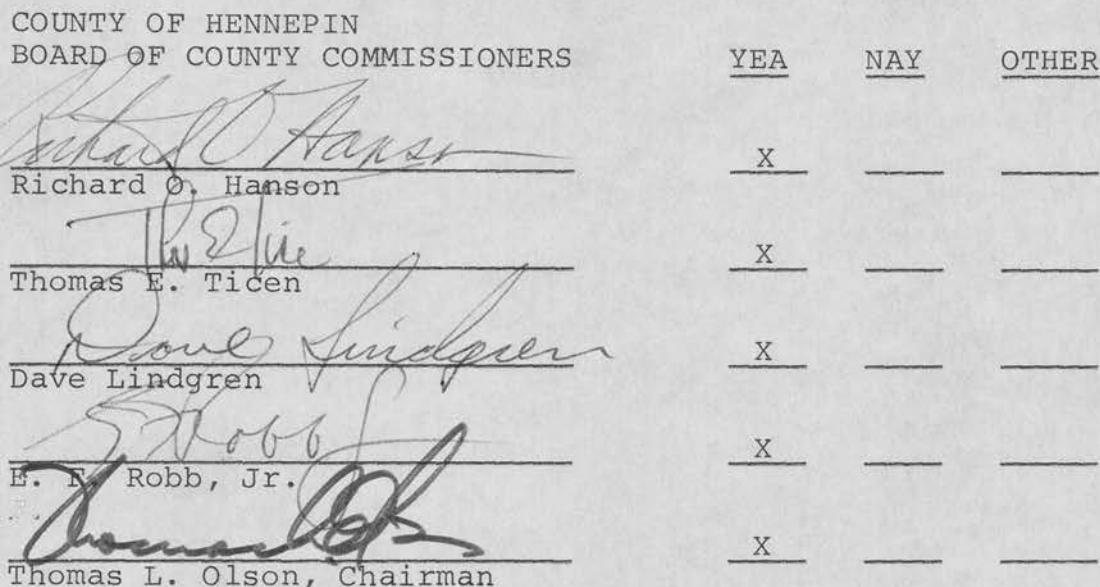 COUNTY OF HENNEPIN
BOARD OF COUNTY COMMISSIONERS YEA NAY OTHER
Richard O Hanson X
Richard O. Hanson
X
Thomas E. Ticen
Dave Lindgren X
Dave Lindgren
E F Robb Jr X
E. F. Robb, Jr.
Thomas Olson X
Thomas L. Olson, Chairman